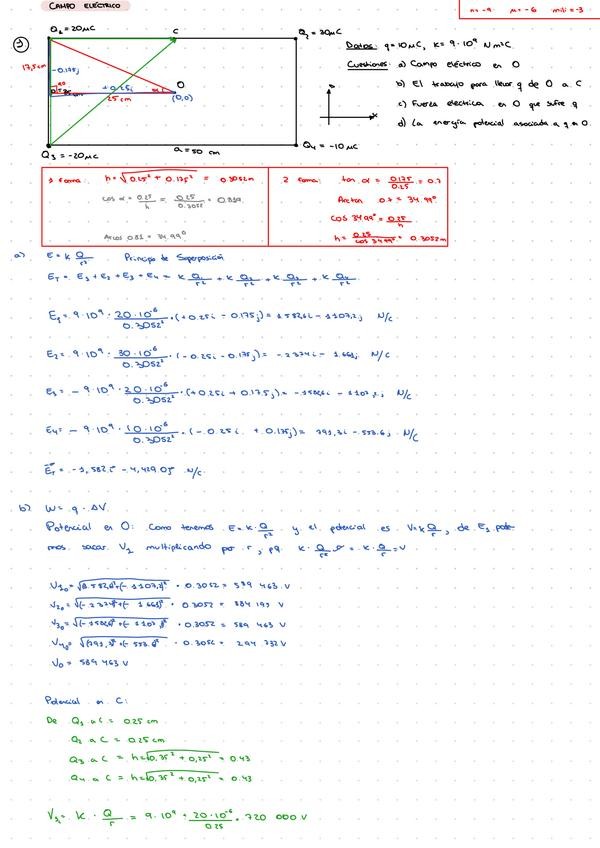 CAMPO ELÉCTRICO
n = -9 μ = -6 mili = -3
1
Q₁ = 20 μC
C
Q₂ = 30 μC
17,5 cm
-0.175j
+0.25i
25 cm
O
(0,0)
Q₃ = -20 μC
a = 50 cm
Q₄ = -10 μC
Datos: q = 10 μC, K = 9·10⁹ N m²C
Cuestiones: a) Campo eléctrico en O
b) El trabajo para llevar q de O a C
c) Fuerza eléctrica en O que sufre q
d) La energía potencial asociada a q a O.
1 forma: h = √0.25² + 0.175² = 0.3052m
cos α = 0.25/h = 0.25/0.3052 = 0.819
Arcos 0.81 = 34.99°
2 forma: tan α = 0.175/0.25 = 0.7
Arctan 0.7 = 34.99°
cos 34.99° = 0.25/h
h = 0.25/cos 34.99° = 0.3052m
a) E = K Q/r² Principio de Superposición
E_T = E₁ + E₂ + E₃ + E₄ = K Q₁/r² + K Q₂/r² + K Q₃/r² + K Q₄/r²
E₁ = 9·10⁹ · 20·10⁻⁶/0.3052² · (+0.25i - 0.175j) = 1582,6i - 1107,2j N/C
E₂ = 9·10⁹ · 30·10⁻⁶/0.3052² · (-0.25i - 0.175j) = -2374i - 1.661j N/C
E₃ = - 9·10⁹ · 20·10⁻⁶/0.3052² · (+0.25i + 0.175j) = -1582,6i - 1107,2j N/C
E₄ = - 9·10⁹ · 10·10⁻⁶/0.3052² · (-0.25i + 0.175j) = 791,3i - 553.6j N/C
E_T = -1,582i - 4,429.0j N/C
b) W = q · ΔV
Potencial en O: Como tenemos E = K · Q/r² y el potencial es V = K Q/r, de E₁ pode
mos sacar V₁ multiplicando por r, pq K · Q/r² r = K · Q/r = V
· 0.3052 = 589 463 V
· 0.3052 = 884 195 V
· 0.3052 = 589 463 V
· 0.3052 = 294 732 V
V₀ = 589 463 V
Potencial en C:
De Q₁ a C = 0.25 cm
Q₂ a C = 0.25 cm
Q₃ a C = h = √0,35² + 0,25² = 0.43
Q₄ a C = h = √0,35² + 0,25² = 0.43
V₁ = K · Q/r = 9·10⁹ · 20·10⁻⁶/0.25 = 720 000 V